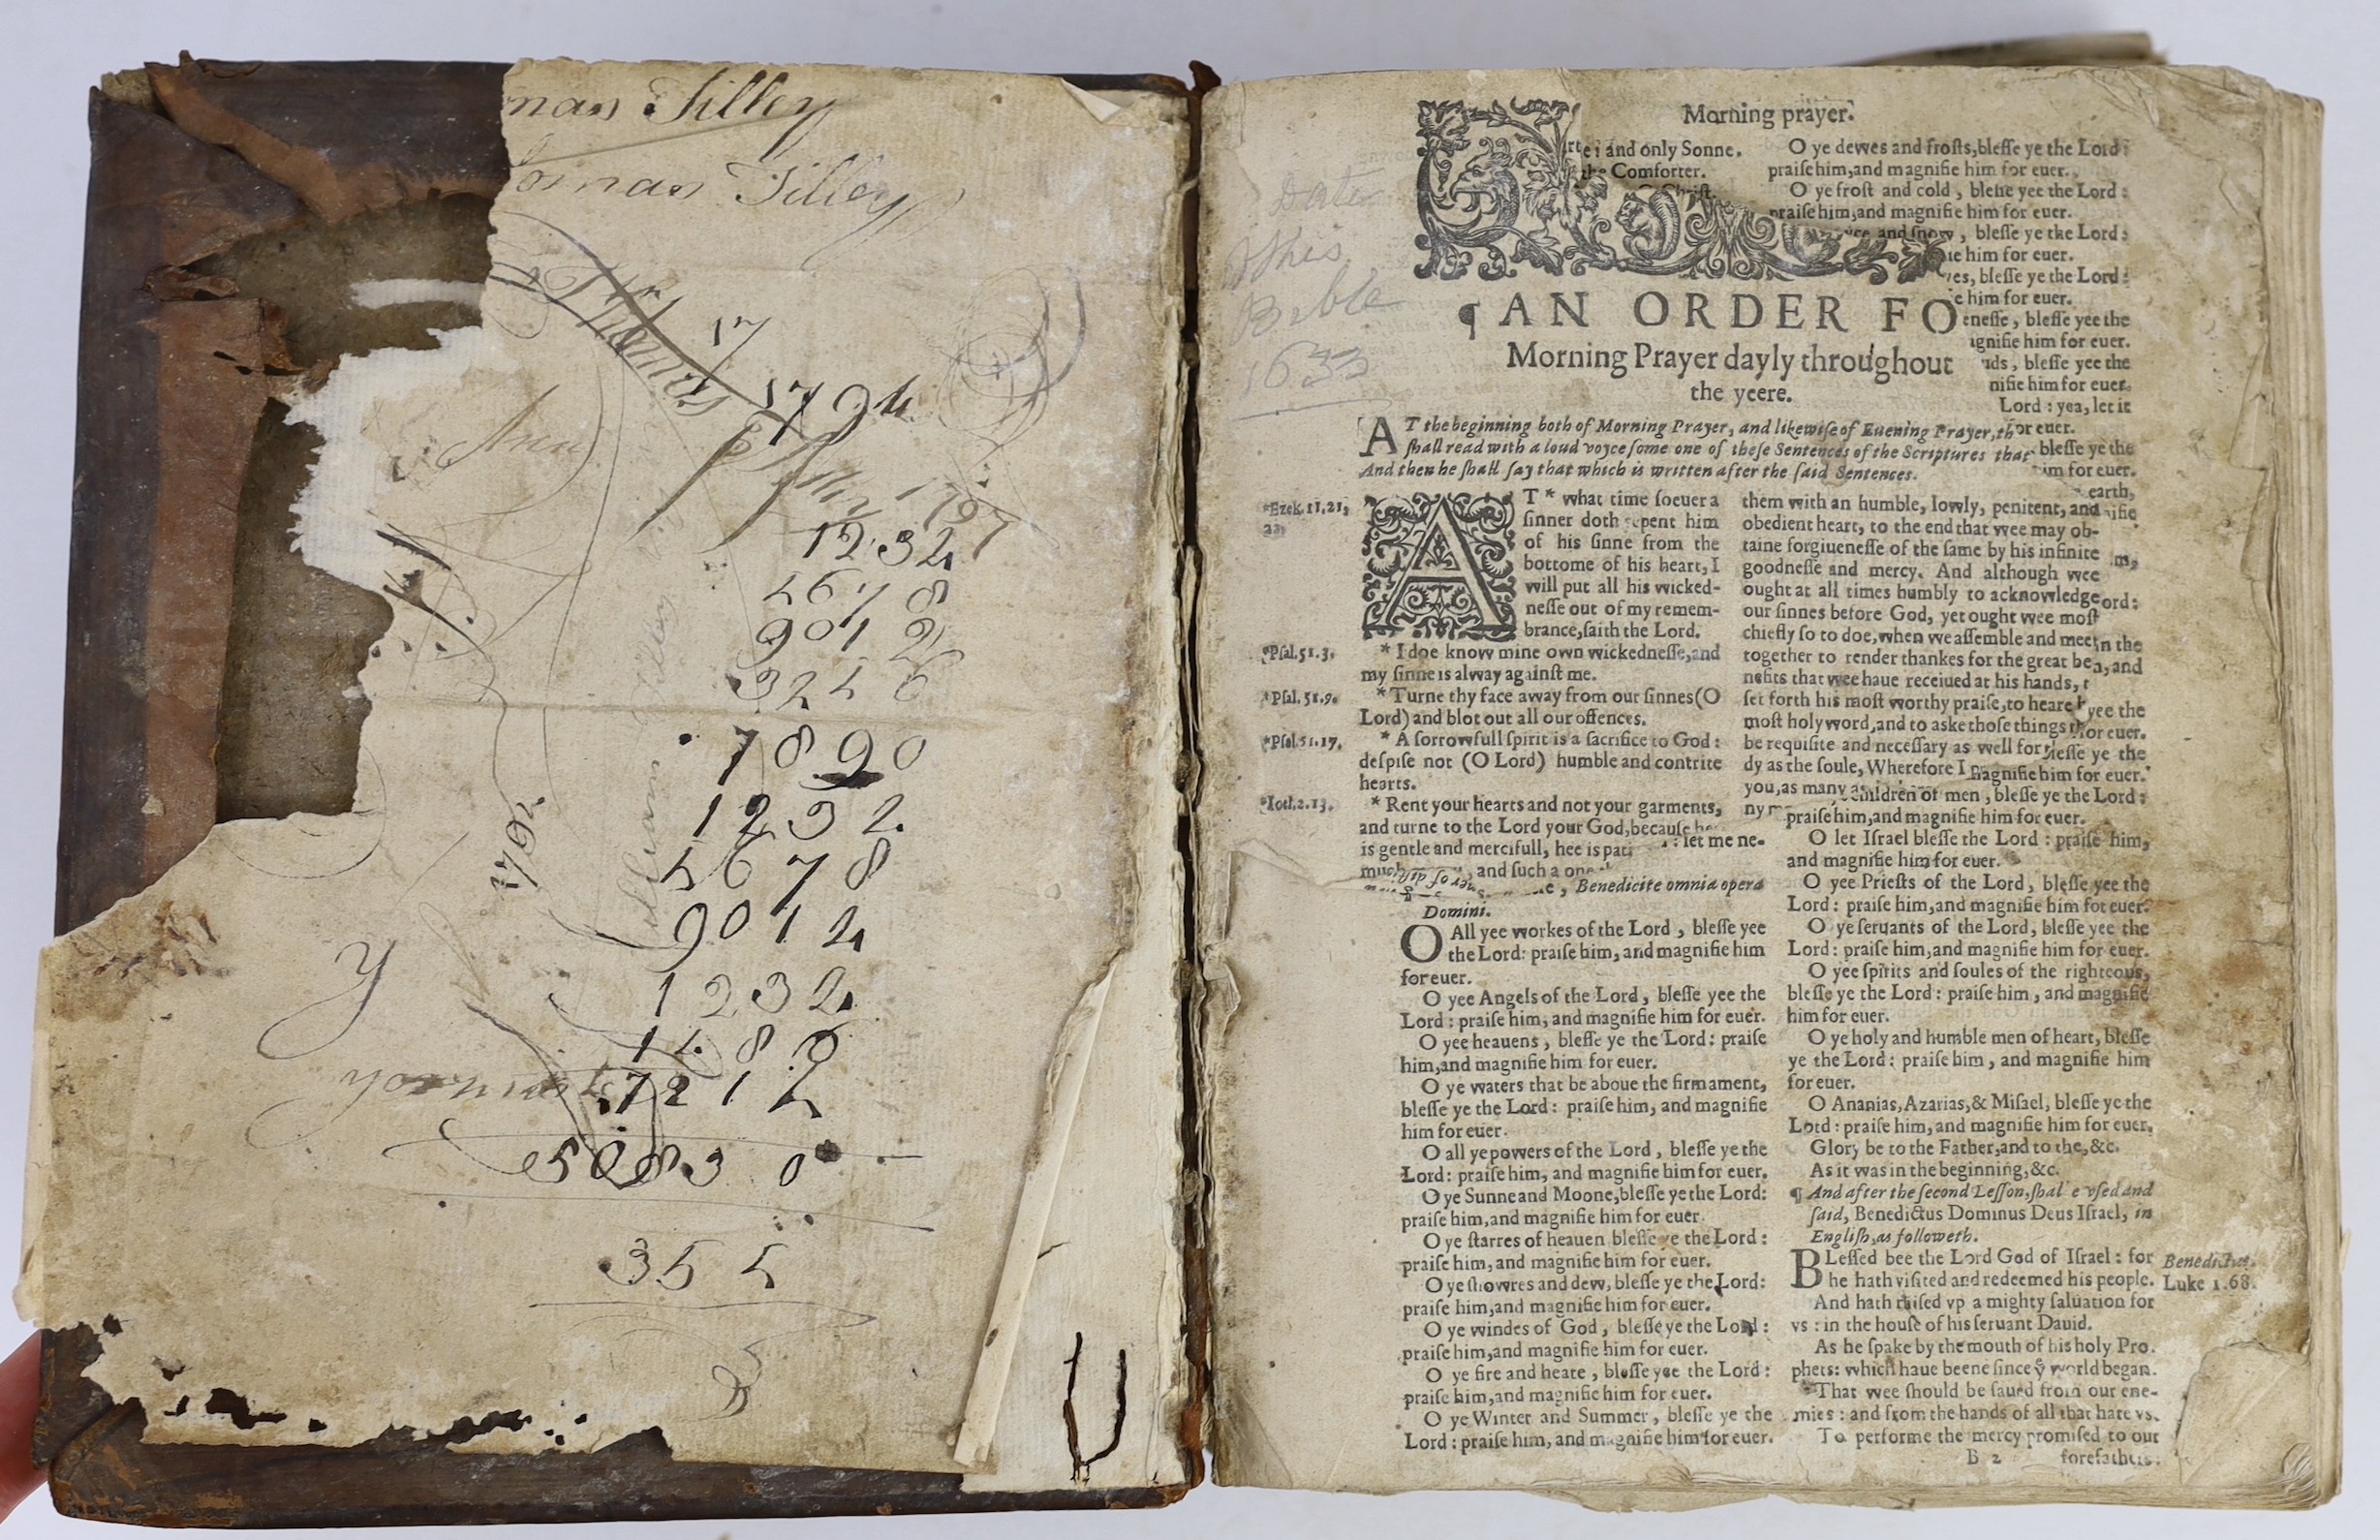 mas Tilley
omas Tilley
Thomas
17
1794
Ann
1797
1232
5678
9012
3456
7890
1792
William Tilley
1232
5678
9012
y
1232
1 5 8 9
7212
50830
355
Date
this
Bible
1633
Morning prayer.
and only Sonne.
the Comforter.
Christ.
O ye dewes and frosts,blesse ye the Lord:
praise him,and magnifie him for euer.
O ye frost and cold, blesse yee the Lord:
praise him,and magnifie him for euer.
yce and snow, blesse ye the Lord:
him for euer.
blesse ye the Lord:
him for euer.
blesse yee the
him for euer.
blesse yee the
him for euer.
Lord: yea, let it
for euer.
blesse ye the
him for euer.
earth,
¶ AN ORDER FO
Morning Prayer dayly throughout
the yeere.
AT the beginning both of Morning Prayer, and likewise of Euening Prayer,
shall read with a loud voyce some one of these Sentences of the Scriptures that
And then he shall say that which is written after the said Sentences.
*Ezek.11.21,
22.
AT * what time soeuer a
sinner doth repent him
of his sinne from the
bottome of his heart, I
will put all his wicked-
nesse out of my remem-
brance,saith the Lord.
*Psal.51.3.
* I doe know mine own wickednesse,and
my sinne is alway against me.
*Psal.51.9.
* Turne thy face away from our sinnes (O
Lord) and blot out all our offences.
*Psal.51.17.
* A sorrowfull spirit is a sacrifice to God:
despise not (O Lord) humble and contrite
hearts.
*Ioel.2.13.
* Rent your hearts and not your garments,
and turne to the Lord your God,because
is gentle and mercifull, hee is
them with an humble, lowly, penitent, and
obedient heart, to the end that wee may ob-
taine forgiuenesse of the same by his infinite
goodnesse and mercy. And although wee
ought at all times humbly to acknowledge
our sinnes before God, yet ought wee most
chiefly so to doe,when we assemble and meet
together to render thankes for the great be
nefits that wee haue receiued at his hands,
set forth his most worthy praise,to heare
most holy word,and to aske those things
be requisite and necessary as well for
dy as the soule, Wherefore I
you,as many
in the
and
yee the
for euer.
blesse ye the
magnifie him for euer.
let me ne-
, and such a one
, Benedicite omnia opera
Domini.
O All yee workes of the Lord, blesse yee
the Lord: praise him, and magnifie him
for euer.
O yee Angels of the Lord, blesse yee the
Lord: praise him, and magnifie him for euer.
O yee heauens, blesse ye the Lord: praise
him,and magnifie him for euer.
O ye waters that be aboue the firmament,
blesse ye the Lord: praise him, and magnifie
him for euer.
O all ye powers of the Lord, blesse ye the
Lord: praise him, and magnifie him for euer.
O ye Sunne and Moone,blesse ye the Lord:
praise him,and magnifie him for euer.
O ye starres of heauen blesse ye the Lord:
praise him, and magnifie him for euer.
O ye showres and dew, blesse ye the Lord:
praise him,and magnifie him for euer.
O ye windes of God, blesse ye the Lord:
praise him,and magnifie him for euer.
O ye fire and heate, blesse yee the Lord:
praise him,and magnifie him for euer.
O ye Winter and Summer, blesse ye the
Lord: praise him, and magnifie him for euer.
children of men, blesse ye the Lord:
praise him,and magnifie him for euer.
O let Israel blesse the Lord: praise him,
and magnifie him for euer.
O yee Priests of the Lord, blesse yee the
Lord: praise him,and magnifie him for euer.
O ye seruants of the Lord, blesse yee the
Lord: praise him,and magnifie him for euer.
O yee spirits and soules of the righteous,
blesse ye the Lord: praise him, and magnifie
him for euer.
O ye holy and humble men of heart, blesse
ye the Lord: praise him, and magnifie him
for euer.
O Ananias,Azarias,& Misael, blesse ye the
Lord: praise him,and magnifie him for euer.
Glory be to the Father,and to the,&c.
As it was in the beginning,&c.
¶ And after the second Lesson,shal e vsed and
said, Benedictus Dominus Deus Israel, in
English,as followeth.
BLessed bee the Lord God of Israel: for
he hath visited and redeemed his people.
Benedictus.
Luke 1.68.
And hath raised vp a mighty saluation for
vs: in the house of his seruant Dauid.
As he spake by the mouth of his holy Pro-
phets: which haue beene since yͤ world began.
That wee should be saued from our ene-
mies: and from the hands of all that hate vs.
To performe the mercy promised to our
B 2 forefathers: